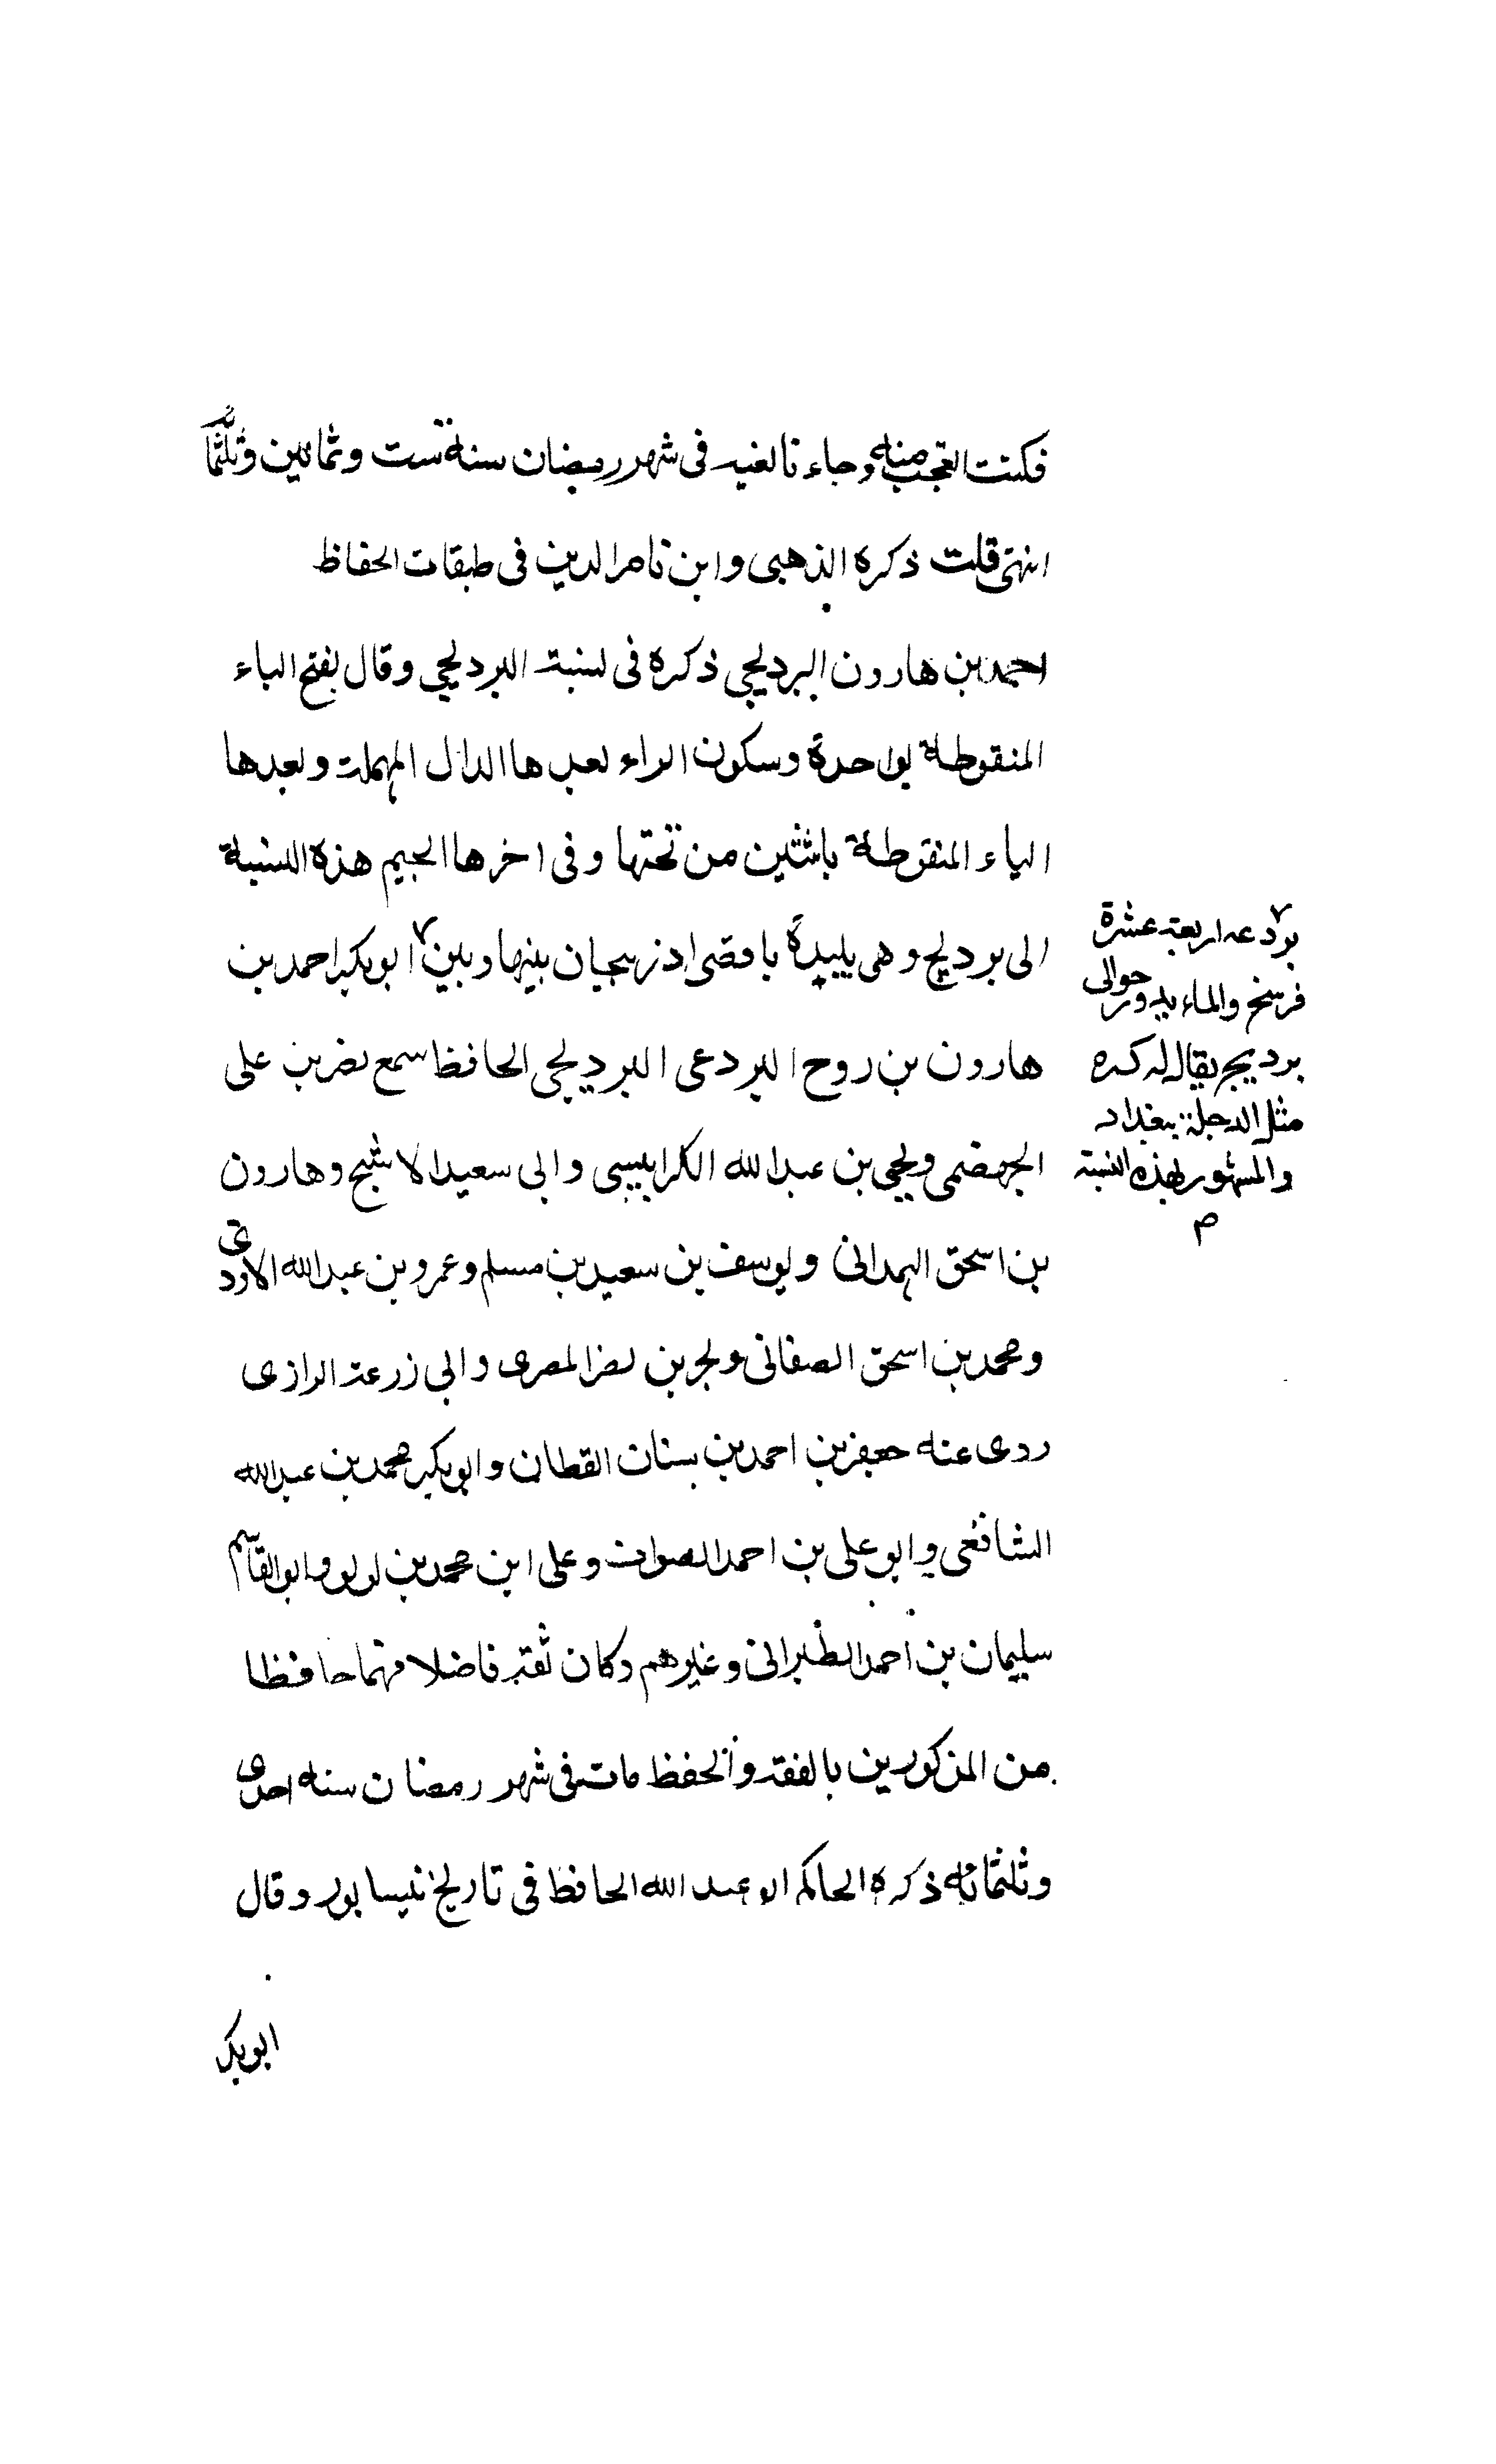 فكنت اتعجب منه وجاء نا لغيه فى شهر رمضان سنة ست وثمانين وثلثمائة
انتهى قلت ذكره الذهبى وابن ناصر الدين فى طبقات الحفاظ
احمد بن هارون البرديجي ذكره فى نسبة البرديجي وقال بفتح الباء
المنقوطة بواحدة وسكون الراء بعدها الدال المهملة وبعدها
الياء المنقوطة باثنتين من تحتها وفى اخرها الجيم هذه النسبة
الى برديج وهى بليدة باقصى اذربيجان بينها وبين ابو بكر احمد بن
بردعه اربعة عشرة
فرسخ والماء يدور حوالى
برديج يقال له كره
مثل الدجلة ببغداد
والمشهور بهذه النسبة
م
هارون بن روح البردعى البرديجى الحافظ سمع نصر بن على
الجهضمى ويحيى بن عبد الله الكرابيسى وابى سعيد الاشج وهارون
بن اسحق الهمدانى ويوسف بن سعيد بن مسلم وعمرو بن عبد الله الاودى
ومحمد بن اسحق الصغانى وبحر بن نصر المصرى وابى زرعة الرازى
روى عنه جعفر بن احمد بن سنان القطان وابو بكر محمد بن عبد الله
الشافعى وابو على بن احمد الصواف وعلى ابن محمد بن لولو وابو القاسم
سليمان بن احمد الطبرانى وغيرهم وكان ثقة فاضلا فهما حافظا
من المذكورين بالفقه والحفظ مات فى شهر رمضان سنه احدى
وثلثمائة ذكره الحاكم ابو عبد الله الحافظ فى تاريخ نيسابور وقال
ابو بكر